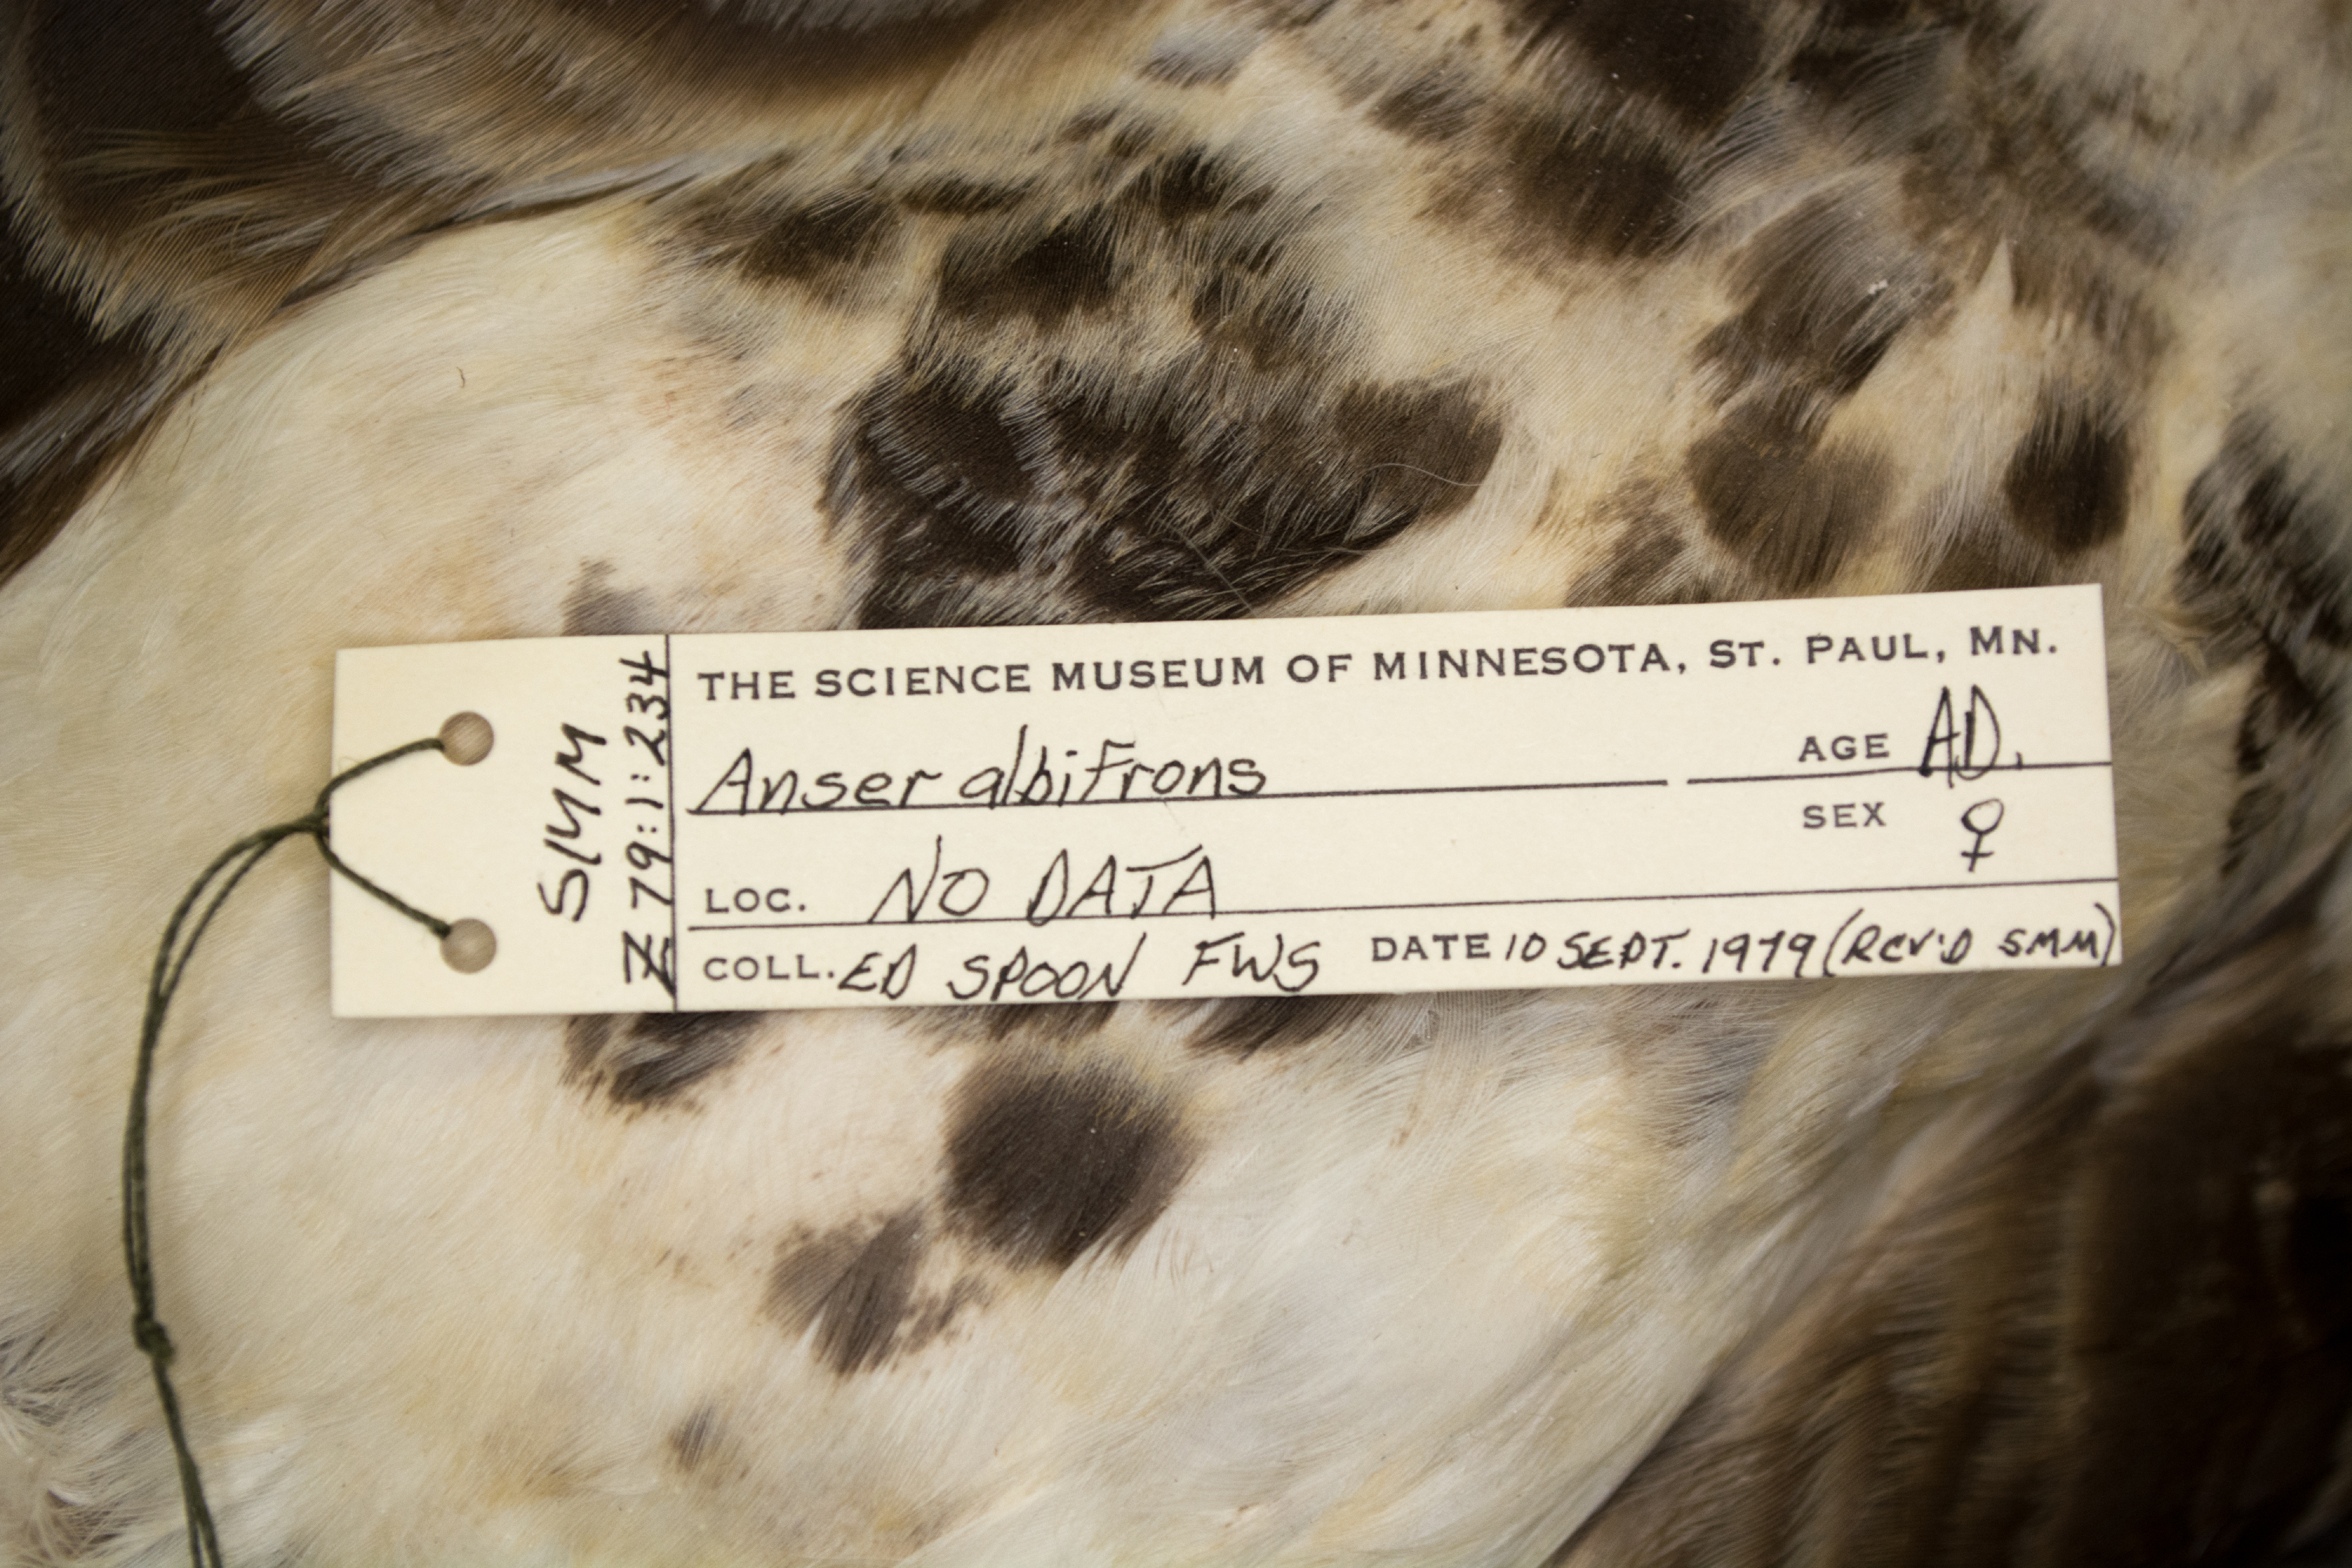 SMM
Z 79:1:234
THE SCIENCE MUSEUM OF MINNESOTA, ST. PAUL, MN.
Anser albifrons AGE AD.
SEX ♀
LOC. NO DATA
COLL. ED SPOON FWS DATE 10 SEPT. 1979 (RCV'D SMM)